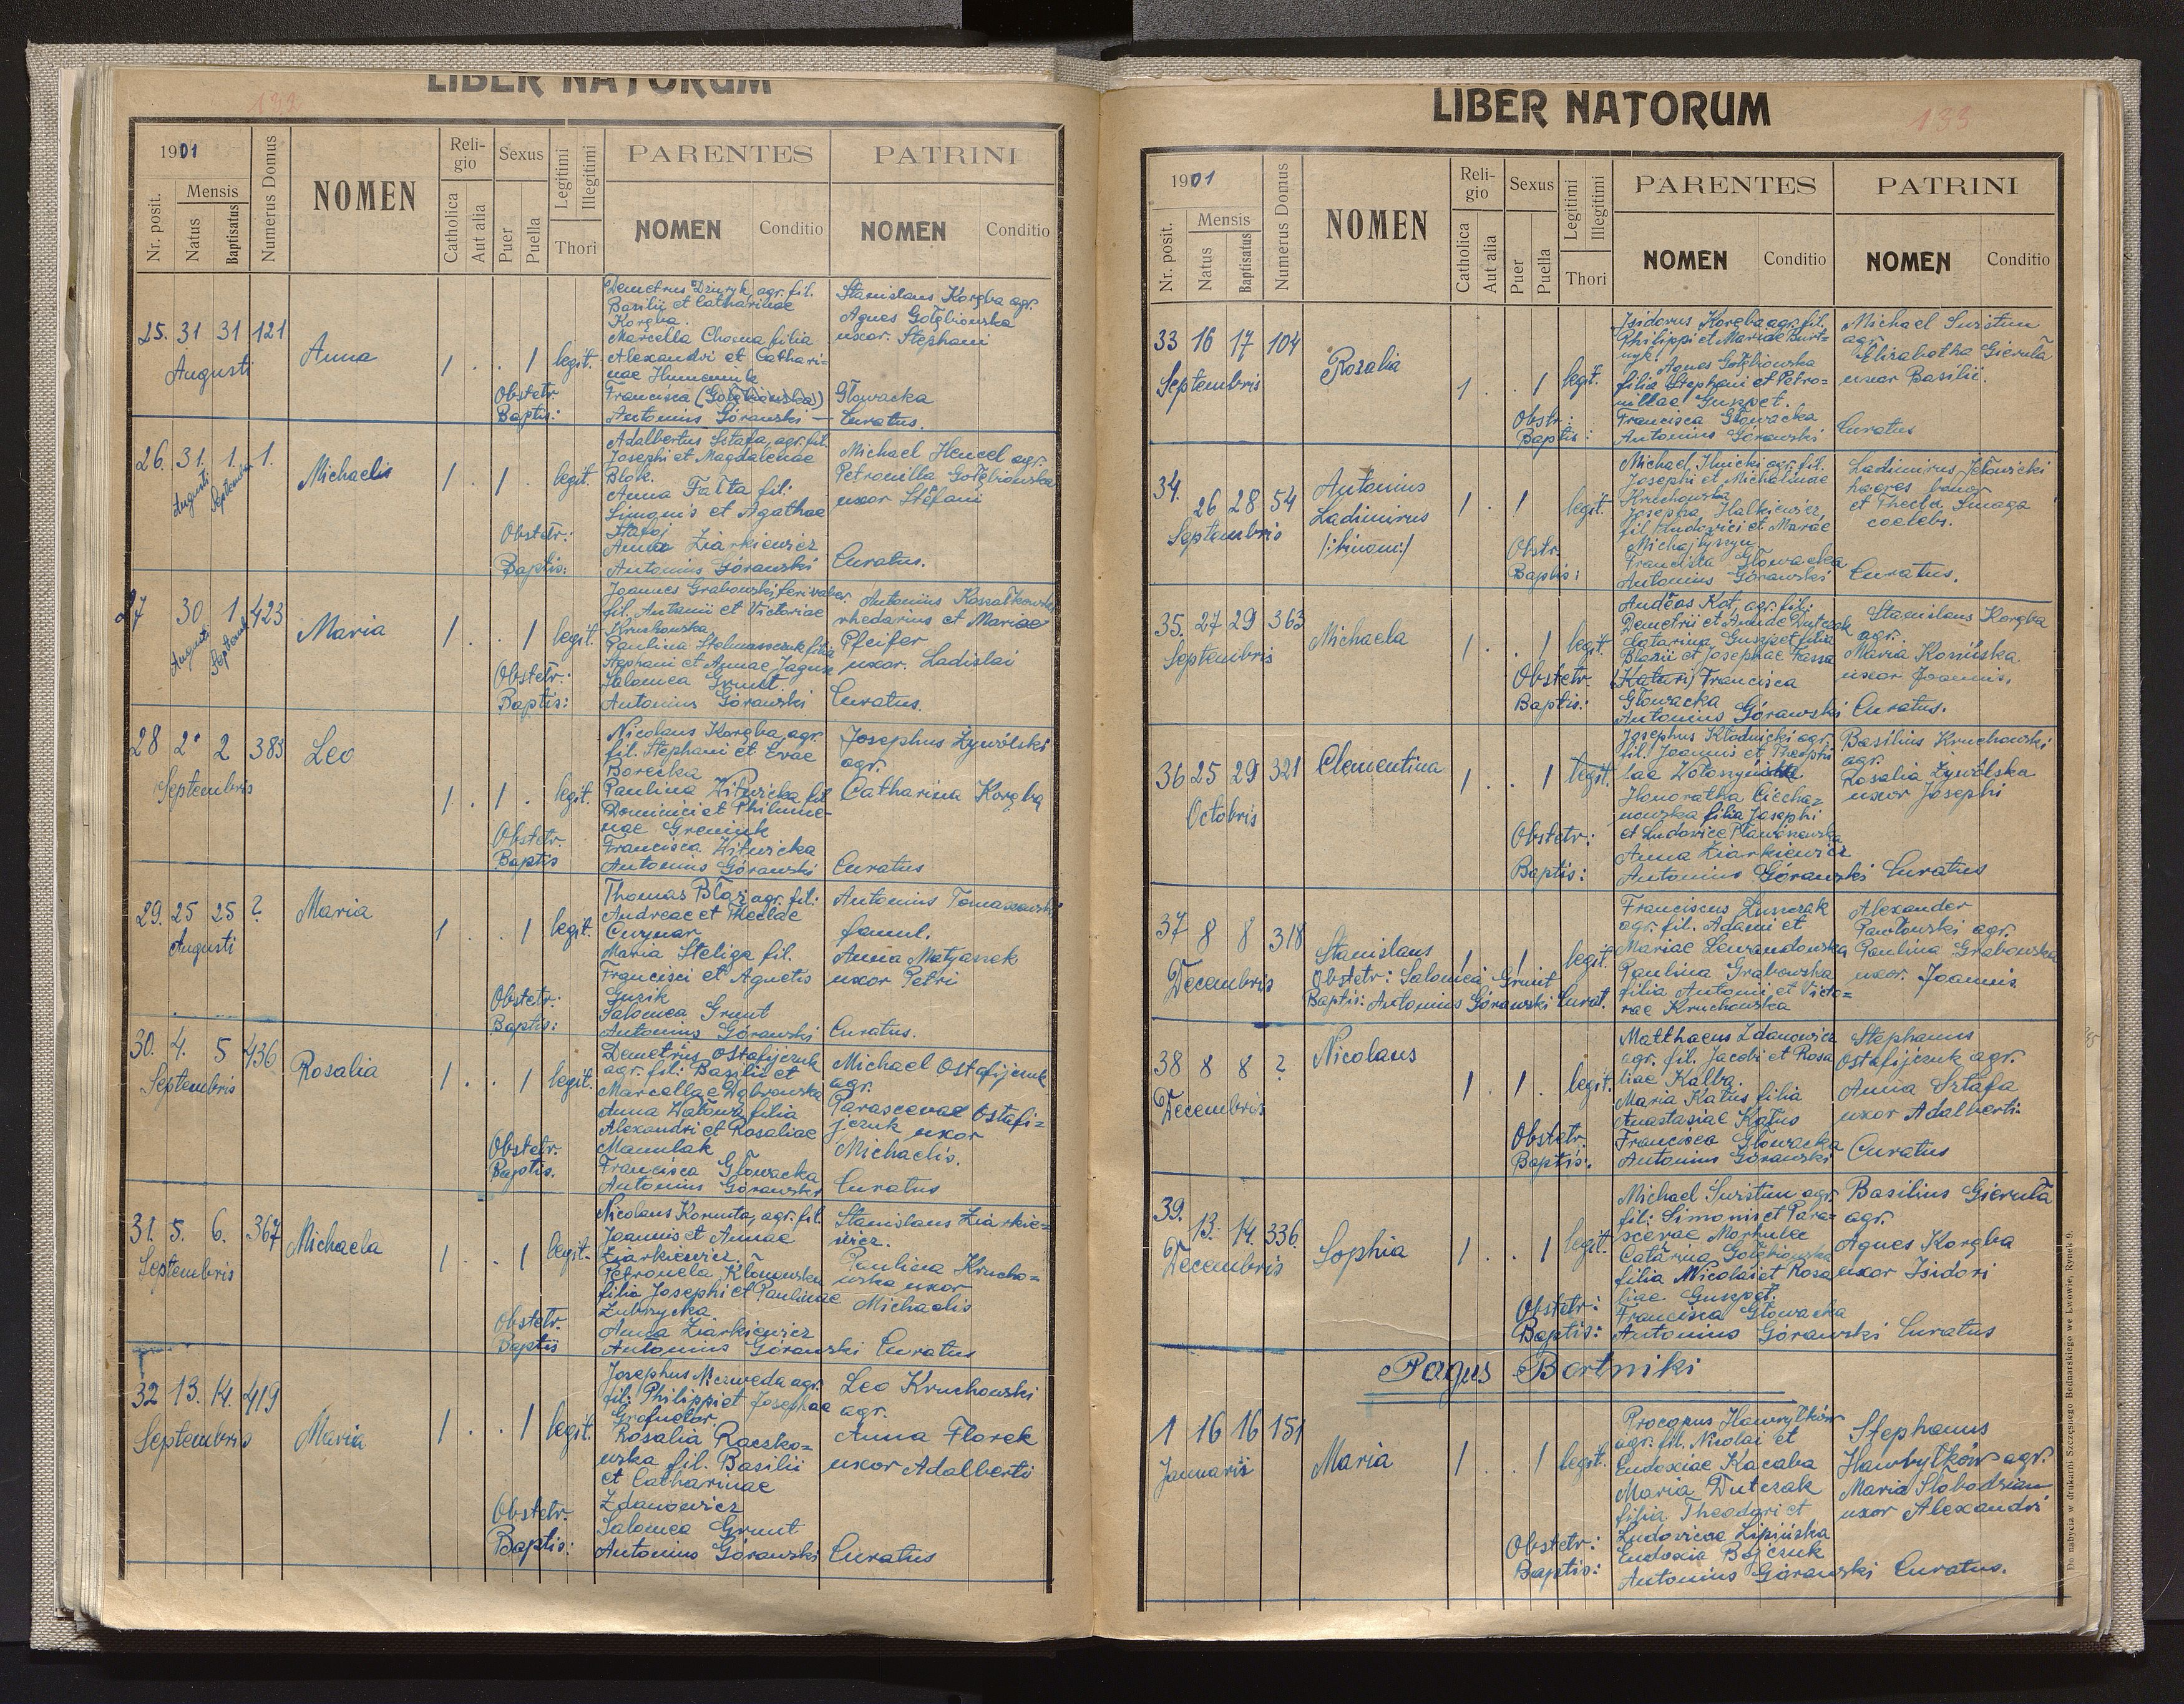 LIBER NATORUM
132
1901
Nr. posit.
Mensis
Natus
Baptisatus
Numerus Domus
NOMEN
Religio
Catholica
Aut alia
Sexus
Puer
Puella
Legitimi
Illegitimi
Thori
PARENTES
NOMEN
Conditio
PATRINI
NOMEN
Conditio
25. 31 31 121
Augusti
Anna
1 . . 1 legit.
Demetrus agr. fil.
Basilii et Catharinae
Korgba.
Marcella Choma filia
Alexandri et Cathari-
nae
Stanislaus Korgba agr.
Agnes Gołębiowska
uxor. Stephani
Obstetr. Francisca (Gołębiowska) Głowacka
Baptis: Antonius Górawski Curatus.
26. 31. 1. 1.
Augusti Septembr
Michaelis
1 . 1 . legit.
Adalbertus Sztafa, agr. fil.
Josephi et Magdalenae
Blok.
Anna Fałta fil.
et Agathae
Michael Hencel agr.
Petronilla Gołębiowska
uxor Stefani
Obstetr: Anna Ziarkiewicz
Baptis: Antonius Górawski Curatus.
27 30 1 423
Augusti Septemb
Maria
1 . . 1 legit.
Joannes Grabowski
fil. Antonii et Victoriae
Kruchowska
Paulina filia
Stephani et Annae
Antonius
rhedarius et Mariae
Pfeifer
uxor. Ladislai
Obstetr: Salomea Grunt.
Baptis: Antonius Górawski Curatus.
28 2 2 383
Septembris
Leo
1 . 1 . legit.
Nicolaus Korgba, agr.
fil. Stephani et Evae
Borecka
Paulina Witwicka fil.
Dominici et Philume-
nae Greniuk
Josephus Żywólski
agr.
Catharina Korgba
Obstetr. Francisca Witwicka
Baptis Antonius Górawski Curatus
29. 25 25 ?
Augusti
Maria
1 . . 1 legit.
Thomas Błaż agr. fil:
Andreae et Theclae
Maria Steliga fil.
Francisci et Agnetis
Guzik
Antonius Tomaszewski
famul.
Anna Matyaszek
uxor Petri
Obstetr: Salomea Grunt
Baptis: Antonius Górawski Curatus.
30. 4. 5 436
Septembris
Rosalia
1 . . 1 legit.
Demetrius Ostafijczuk
agr. fil: Basilii et
Marcellae Dąbrowska
Anna filia
Alexandri et Rosaliae
Manulak
Michael Ostafijczuk
agr.
Parascevae Ostafi-
jczuk uxor
Michaelis.
Obstetr. Francisca Głowacka
Baptis. Antonius Górawski Curatus
31. 5. 6. 367
Septembris
Michaela
1 . . 1 legit.
Nicolaus Kornuta, agr. fil.
Joannis et Annae
Ziarkiewicz.
Petronela
filia Josephi et Paulinae
Zubrzycka
Stanislaus Ziarkie-
wicz.
Paulina Krucho-
wska uxor
Michaelis
Obstetr. Anna Ziarkiewicz
Baptis Antonius Górawski Curatus
32 13. 14. 419
Septembris
Maria
1 . . 1 legit.
Josephus agr.
fil: Philippi et Josephae
Rosalia Raczko-
wska fil. Basilii
et Catharinae
Zdanowicz
Leo Kruchowski
agr.
Anna Florek
uxor Adalberti
Obstetr. Salomea Grunt
Baptis: Antonius Górawski Curatus
LIBER NATORUM
133
1901
Nr. posit.
Mensis
Natus
Baptisatus
Numerus Domus
NOMEN
Religio
Catholica
Aut alia
Sexus
Puer
Puella
Legitimi
Illegitimi
Thori
PARENTES
NOMEN
Conditio
PATRINI
NOMEN
Conditio
33 16 17 104
Septembris
Rosalia
1 . . 1 legit.
Isidorus Korgba agr. fil.
Philippi et Mariae Burt-
nyk. Agnes Gołębiowska
filia Stephani et Petro-
nillae Guszpet.
Michael Swistun
agr.
Elisabetha Gierula
uxor Basilii.
Obstr: Francisca Głowacka
Baptis: Antonius Górawski Curatus
34. 26 28 54
Septembris
Antonius
Ladimirus
/:binom:/
1 . 1 legit.
Michael Ilnicki agr. fil.
Josephi et Michalinae
Kruchowska
Josepha Halkiewicz,
fil. Ludovici et Mariae
Ladimirus Jełowicki
haeres bonor
et Thecla Smaga
coelebs.
Obstr. Francisca Głowacka
Baptis: Antonius Górawski Curatus.
35. 27 29 363
Septembris
Michaela
1 . . 1 legit.
Andreas Kot, agr. fil.
Demetrii et Annae Dutczak
Catarina Guszpet filia
Blazii et Josephae Fassa
Stanislaus Korgba
agr.
Maria Kosińska
uxor Joannis.
Obstetr. (Katuri) Francisca
Głowacka
Baptis: Antonius Górawski Curatus.
36 25 29 321
Octobris
Clementina
1 . . 1 legit.
Josephus Kłodnicki agr.
fil. Joannis et Theophi
lae Wołoszyńska.
Honoratha Ciecha-
nowska filia Josephi
et Ludovice
Basilius Kruchowski
agr.
Rosalia Żywólska
uxor Josephi
Obstetr: Anna Ziarkiewicz
Baptis: Antonius Górawski Curatus
37 8 8 318
Decembris
Stanislaus
1 . 1 . legit.
Franciscus
agr. fil. Adami et
Mariae Lewandowska
Paulina Grabowska
filia Antonii et Victo-
rae Kruchowska
Alexander
Pawłowski agr.
Paulina Grabowska
uxor. Joannis
Obstetr: Salomea Grunt
Baptis: Antonius Górawski Curat.
38 8 8 ?
Decembris
Nicolaus
1 . 1 . legit.
Matthaeus Zdanowicz
agr. fil. Jacobi et Rosa
liae Kalba.
Maria Katus filia
Anastasiae Katus
Stephanus
Ostafijczuk agr.
Anna Sztafa
uxor Adalberti
Obstetr. Francisca Głowacka
Baptis: Antonius Górawski Curatus
39. 13. 14. 336.
Decembris
Sophia
1 . . 1 legit.
Michael Swistun agr.
fil: Simonis et Para-
scevae
Catarina Gołębiowska
filia Nicolai et Rosa
liae Guszpet.
Basilius Gierula
agr.
Agnes Korgba
uxor Isidori
Obstetr: Francisca Głowacka
Baptis: Antonius Górawski Curatus
Pagus Bortniki
1 16 16 151
Januaris
Maria
1 . . 1 legit.
Procopus Hawryłków
agr. fil. Nicolai et
Eudoxiae Kacaba
Maria Dutczak
filia Theodori et
Ludovicae Lipińska
Stephanus
Hawryłków agr.
Maria Słobodzian
uxor Alexandri
Obstetr: Eudoxia Bojczuk
Baptis: Antonius Górawski Curatus.
Do nabycia w drukarni Szczęsnego Bednarskiego we Lwowie, Rynek 9.